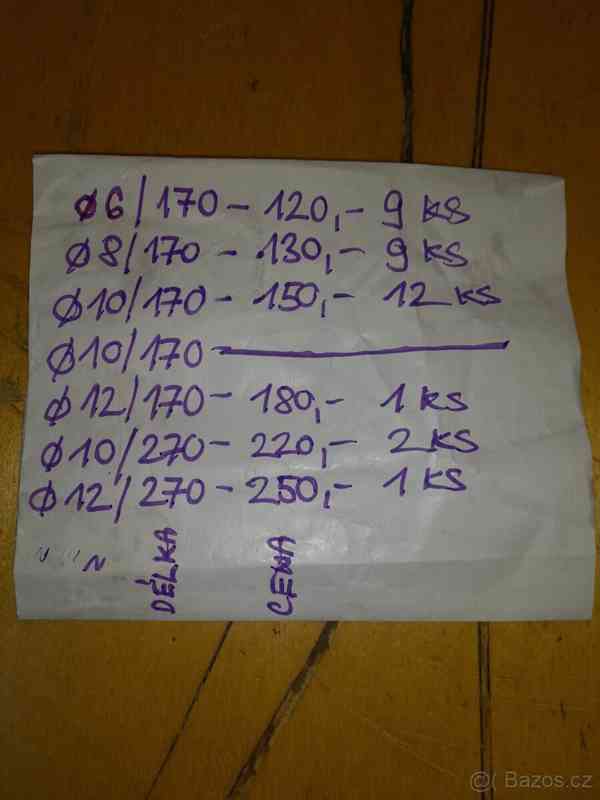 Ø6/170 - 120,- 9 KS
Ø8/170 - 130,- 9 KS
Ø10/170 - 150,- 12 KS
Ø10/170 -
Ø12/170 - 180,- 1 KS
Ø10/270 - 220,- 2 KS
Ø12/270 - 250,- 1 KS
DÉLKA CENA
Bazos.cz